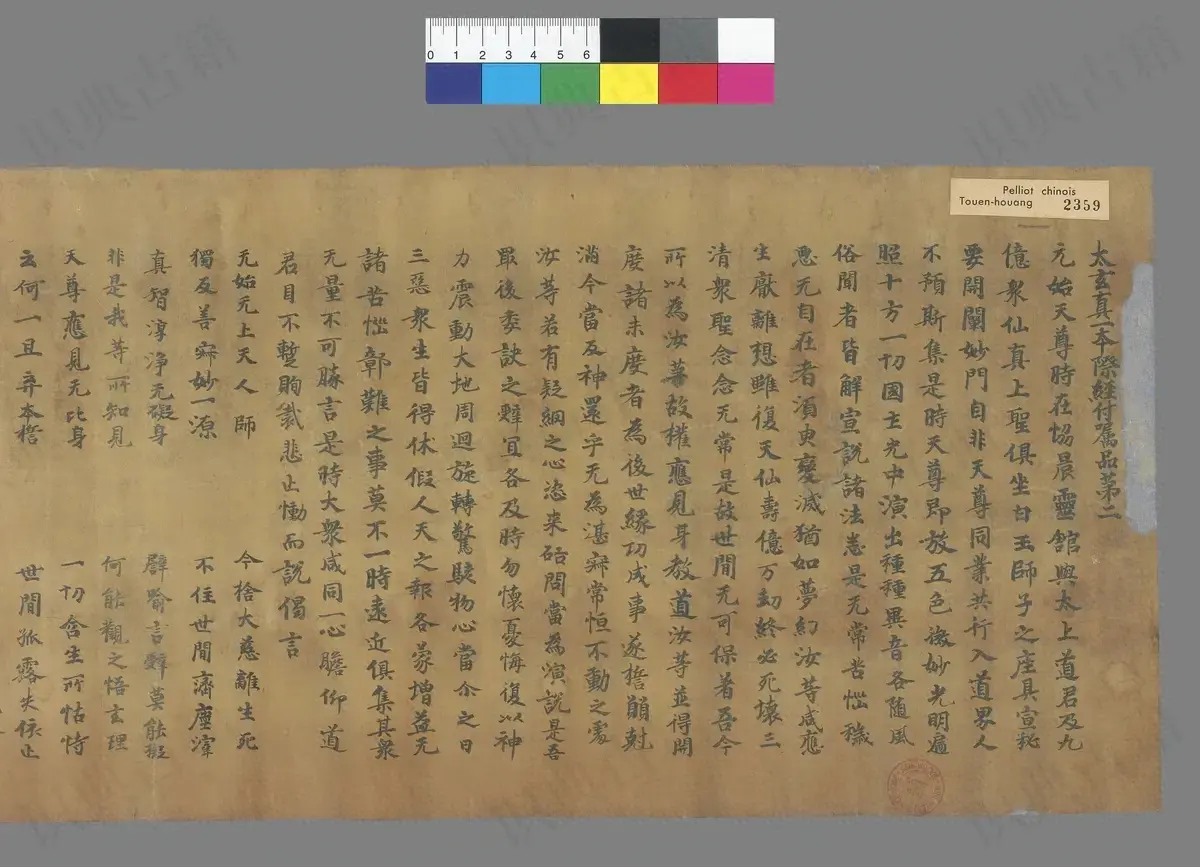 Pelliot chinois
Touen-houang 2359
0 1 2 3 4 5 6
太玄真一本際經付嘱品苐二
元始天尊時在協晨靈舘與太上道君及九
億衆仙真上聖俱坐白玉師子之座具宣祕
要開闡妙門自非天尊同業共行入道界人
不預斯集是時天尊即放五色微妙光明遍
照十方一切國土光中演出種種異音各随風
俗聞者皆解宣說諸法悉是无常苦惱穢
惡无自在者湏臾變滅猶如夢幻汝等咸應
生猒離想雖復天仙壽億万劫終必死壞三
清衆聖念念无常是故世間无可保着吾今
所以為汝等故權應見身教道汝等並得開
度諸未度者為後世縁功成事遂擔願尅
滿今當反神還乎无為湛寂常恒不動之處
汝等若有疑網之心恣来諮問當為演說是吾
最後委訣之辤宜各及時勿懷憂悔復以神
力震動大地周迴旋轉驚駭物心當尒之日
三惡衆生皆得休假人天之報各蒙增益无
諸苦惱鄣難之事莫不一時遠近俱集其衆
无量不可勝言是時大衆咸同一心瞻仰道
君目不蹔眴戴悲止慟而說偈言
无始无上天人師 今捨大慈離生死
獨反善寂妙一源 不住世間濟塵滓
真智淳淨无礙身 辟喻言辤莫能擬
非是我等所知見 何能觀之悟玄理
天尊應見无比身 一切含生所怙恃
云何一旦弃本擔 世間孤露失依止
识典古籍